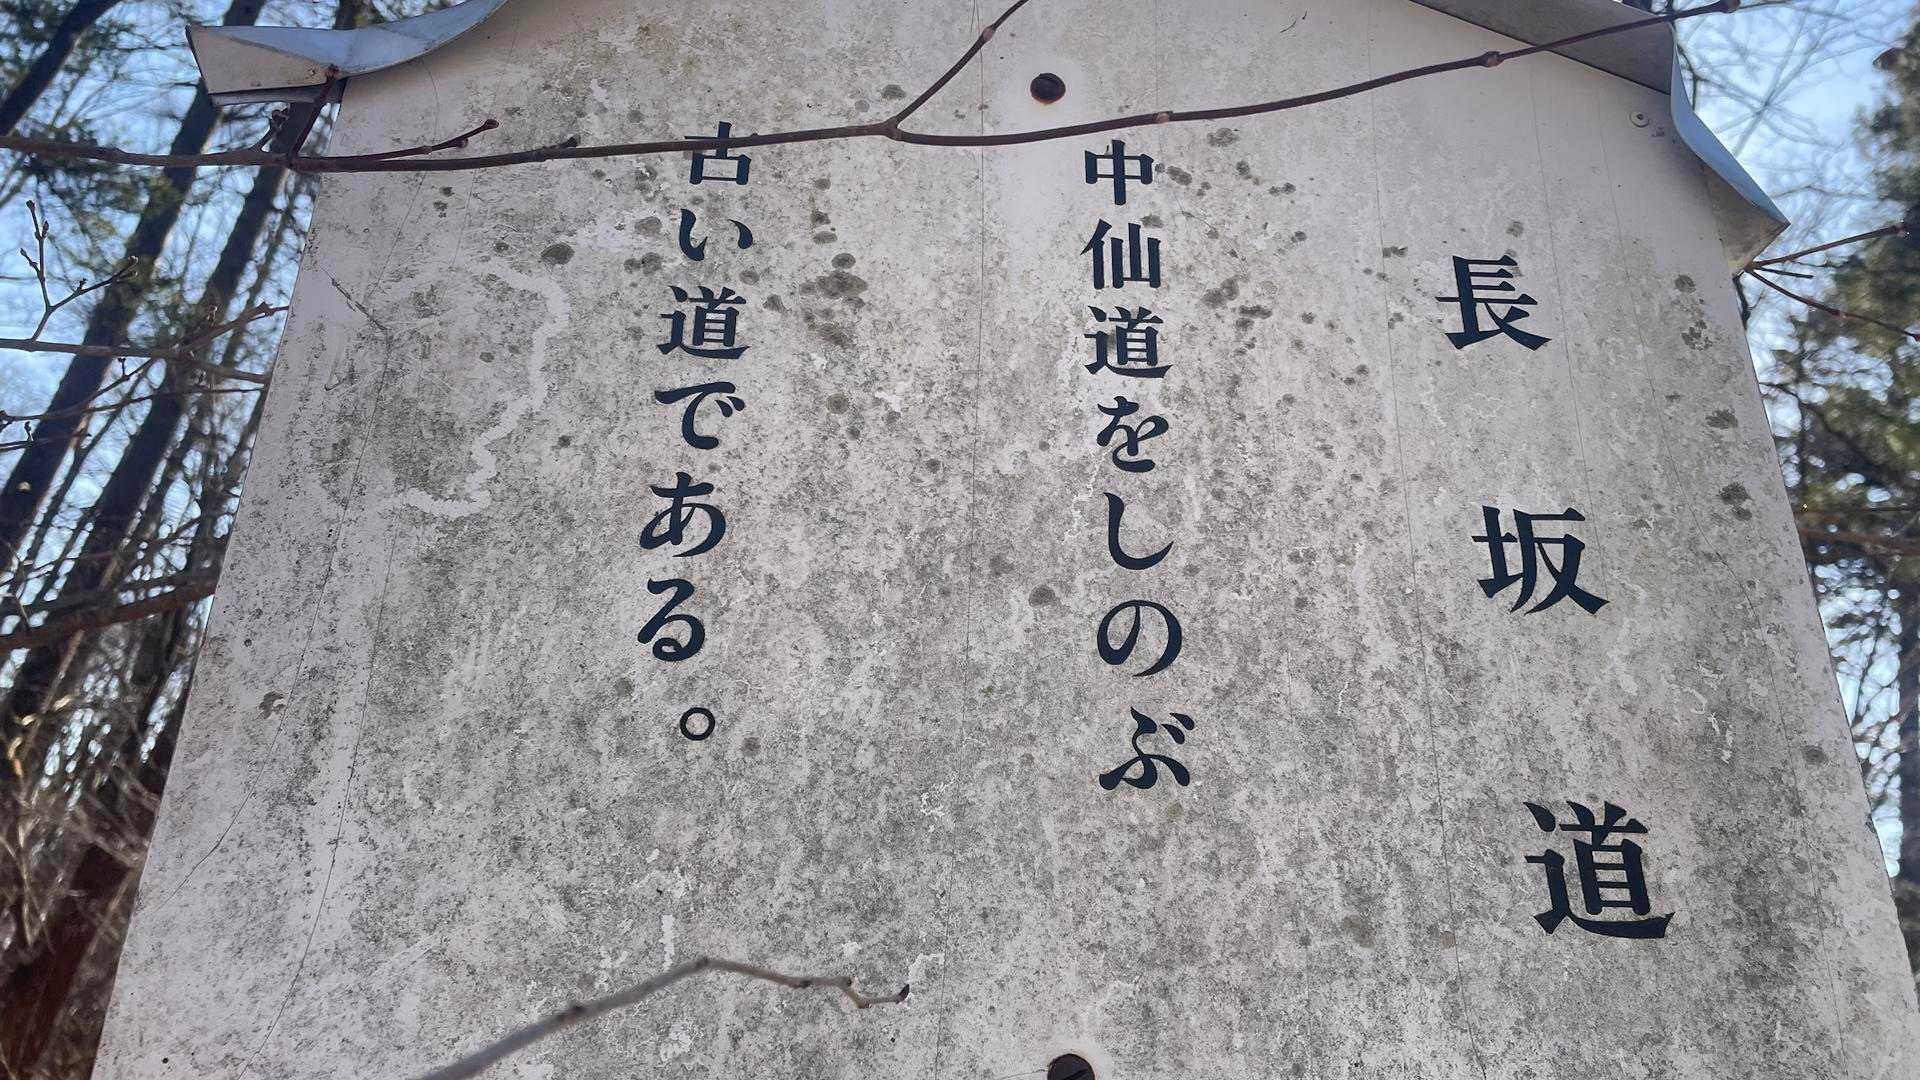 長坂道
中仙道をしのぶ
古い道である。